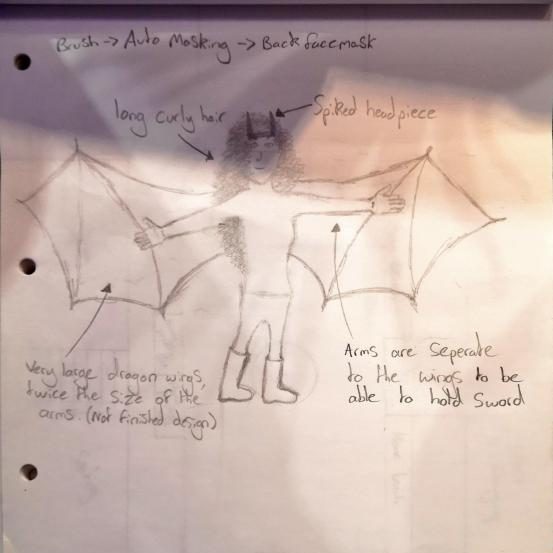 Brush -> Auto Masking -> Backfacemask
long curly hair
Spiked headpiece
Very large dragon wings,
twice the size of the
arms. (Not finished design)
Arms are seperate
to the wings to be
able to hold Sword